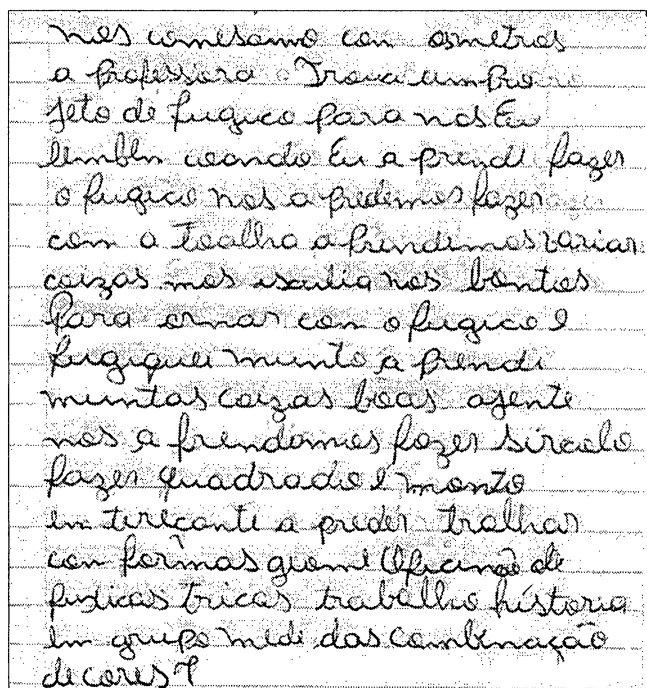 nos comesamo con osmetros
a professora Trouci um pro
jeto de fugico para nos Eu
lembln coando Eu a prendi fazer
o fugico nos a predemos fazer
com a toalha a prendimos variar
coizas mos isculia nos bontos
Para ornar con o fugico e
fugiquei munto a prendi
muntas coizas boas agente
nos a prendamos fazer sircolo
fazer quadrado e monto
in terecante a preder tralhar
con formas geome Oficinão de
fuxicas tricas trabalho historia
em grupo medi das combinação
de cores